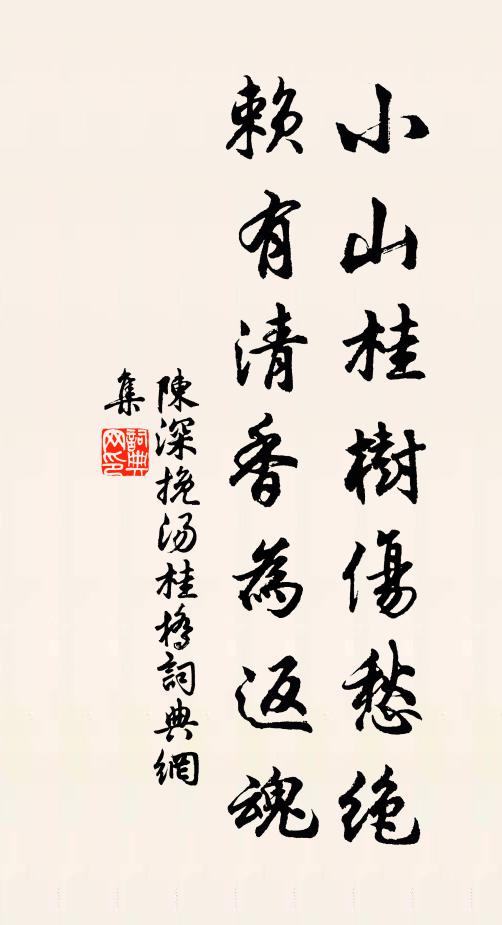 小山桂樹傷愁絶
賴有清香為返魂
陳深挽汤桂橋詞典網
集
詞典網印